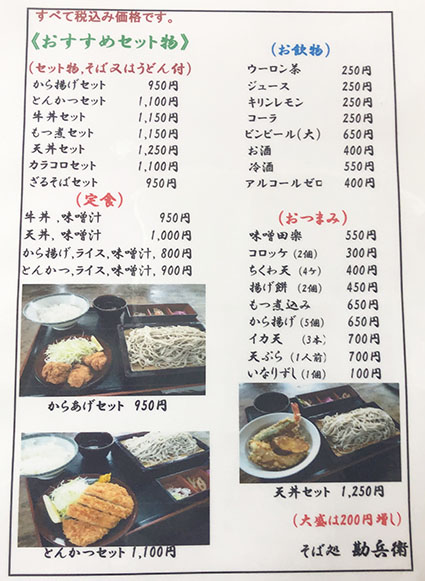 すべて税込み価格です。
《おすすめセット物》
(セット物,そば又はうどん付)
から揚げセット 950円
とんかつセット 1,100円
牛丼セット 1,150円
もつ煮セット 1,150円
天丼セット 1,250円
カラコロセット 1,100円
ざるそばセット 950円
(定食)
牛丼,味噌汁 950円
天丼,味噌汁 1,000円
から揚げ,ライス,味噌汁, 800円
とんかつ,ライス,味噌汁, 900円
からあげセット 950円
とんかつセット 1,100円
(お飲物)
ウーロン茶 250円
ジュース 250円
キリンレモン 250円
コーラ 250円
ビンビール(大) 650円
お酒 400円
冷酒 550円
アルコールゼロ 400円
(おつまみ)
味噌田楽 550円
コロッケ (2個) 300円
ちくわ天 (4ケ) 400円
揚げ餅 (2個) 450円
もつ煮込み 650円
から揚げ (5個) 650円
イカ天 (3本) 700円
天ぷら (1人前) 700円
いなりずし (1個) 100円
天丼セット 1,250円
(大盛は200円増し)
そば処 勘兵衛